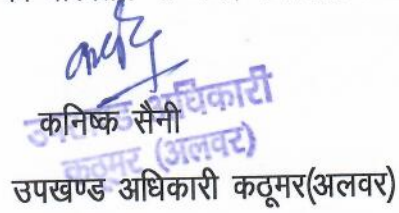 कनिष्क सैनी
उपखण्ड अधिकारी
कठूमर (अलवर)
उपखण्ड अधिकारी कठूमर(अलवर)